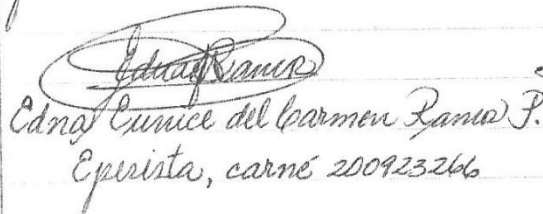 Edna Ramos
Edna Eunice del Carmen Ramos P.
Epesista, carné 200923266